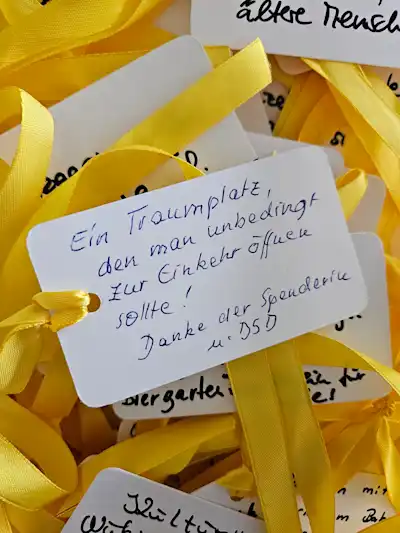 ältere Mensch
Ein Traumplatz,
den man unbedingt
zur Einkehr öffnen
sollte!
Danke der Spenderin
u. DSD
biergarten
für
Kultur
mit